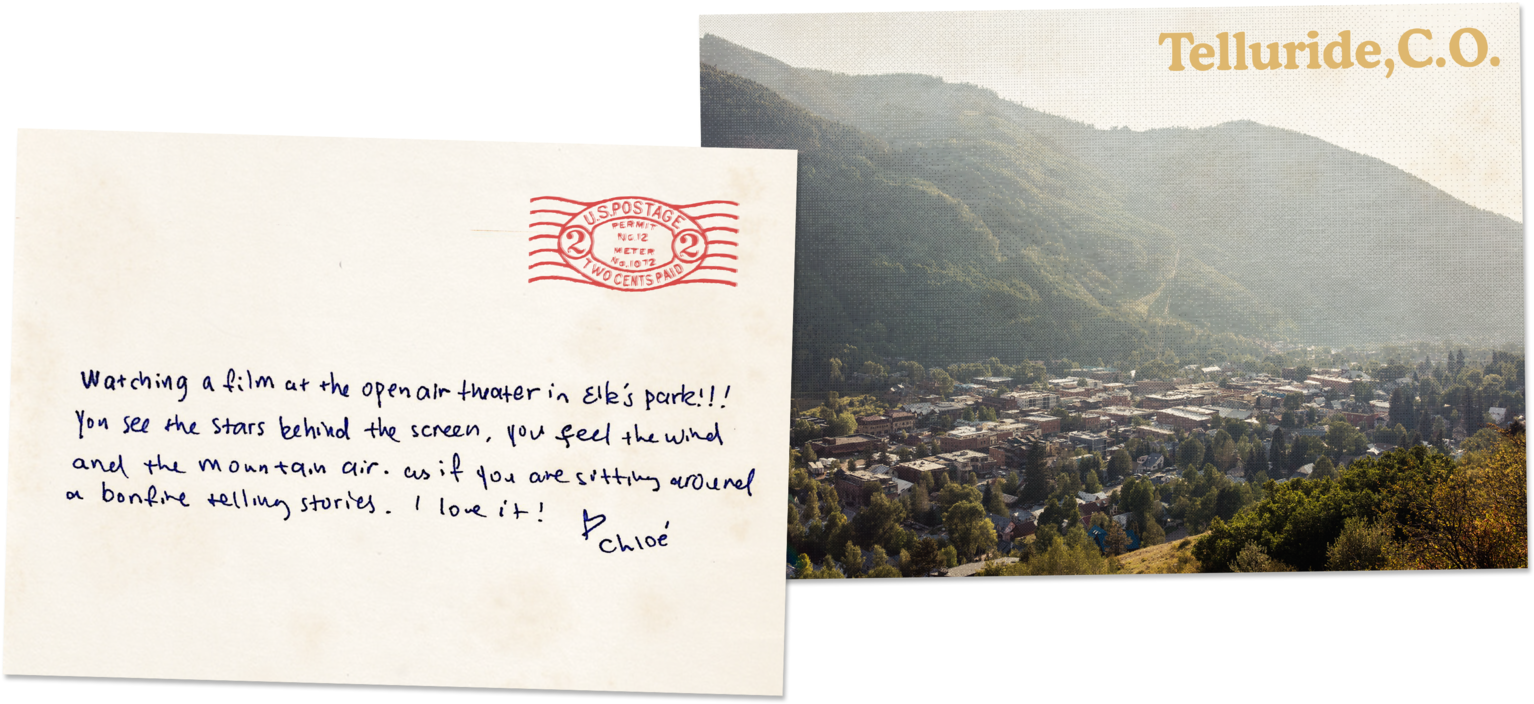 Telluride, C.O.
U.S. POSTAGE
PERMIT
No. 12
METER
No. 1072
2 2
TWO CENTS PAID
Watching a film at the open air theater in Elk's park!!!
You see the stars behind the screen, you feel the wind
and the mountain air. as if you are sitting around
a bonfire telling stories. I love it!
Chloé